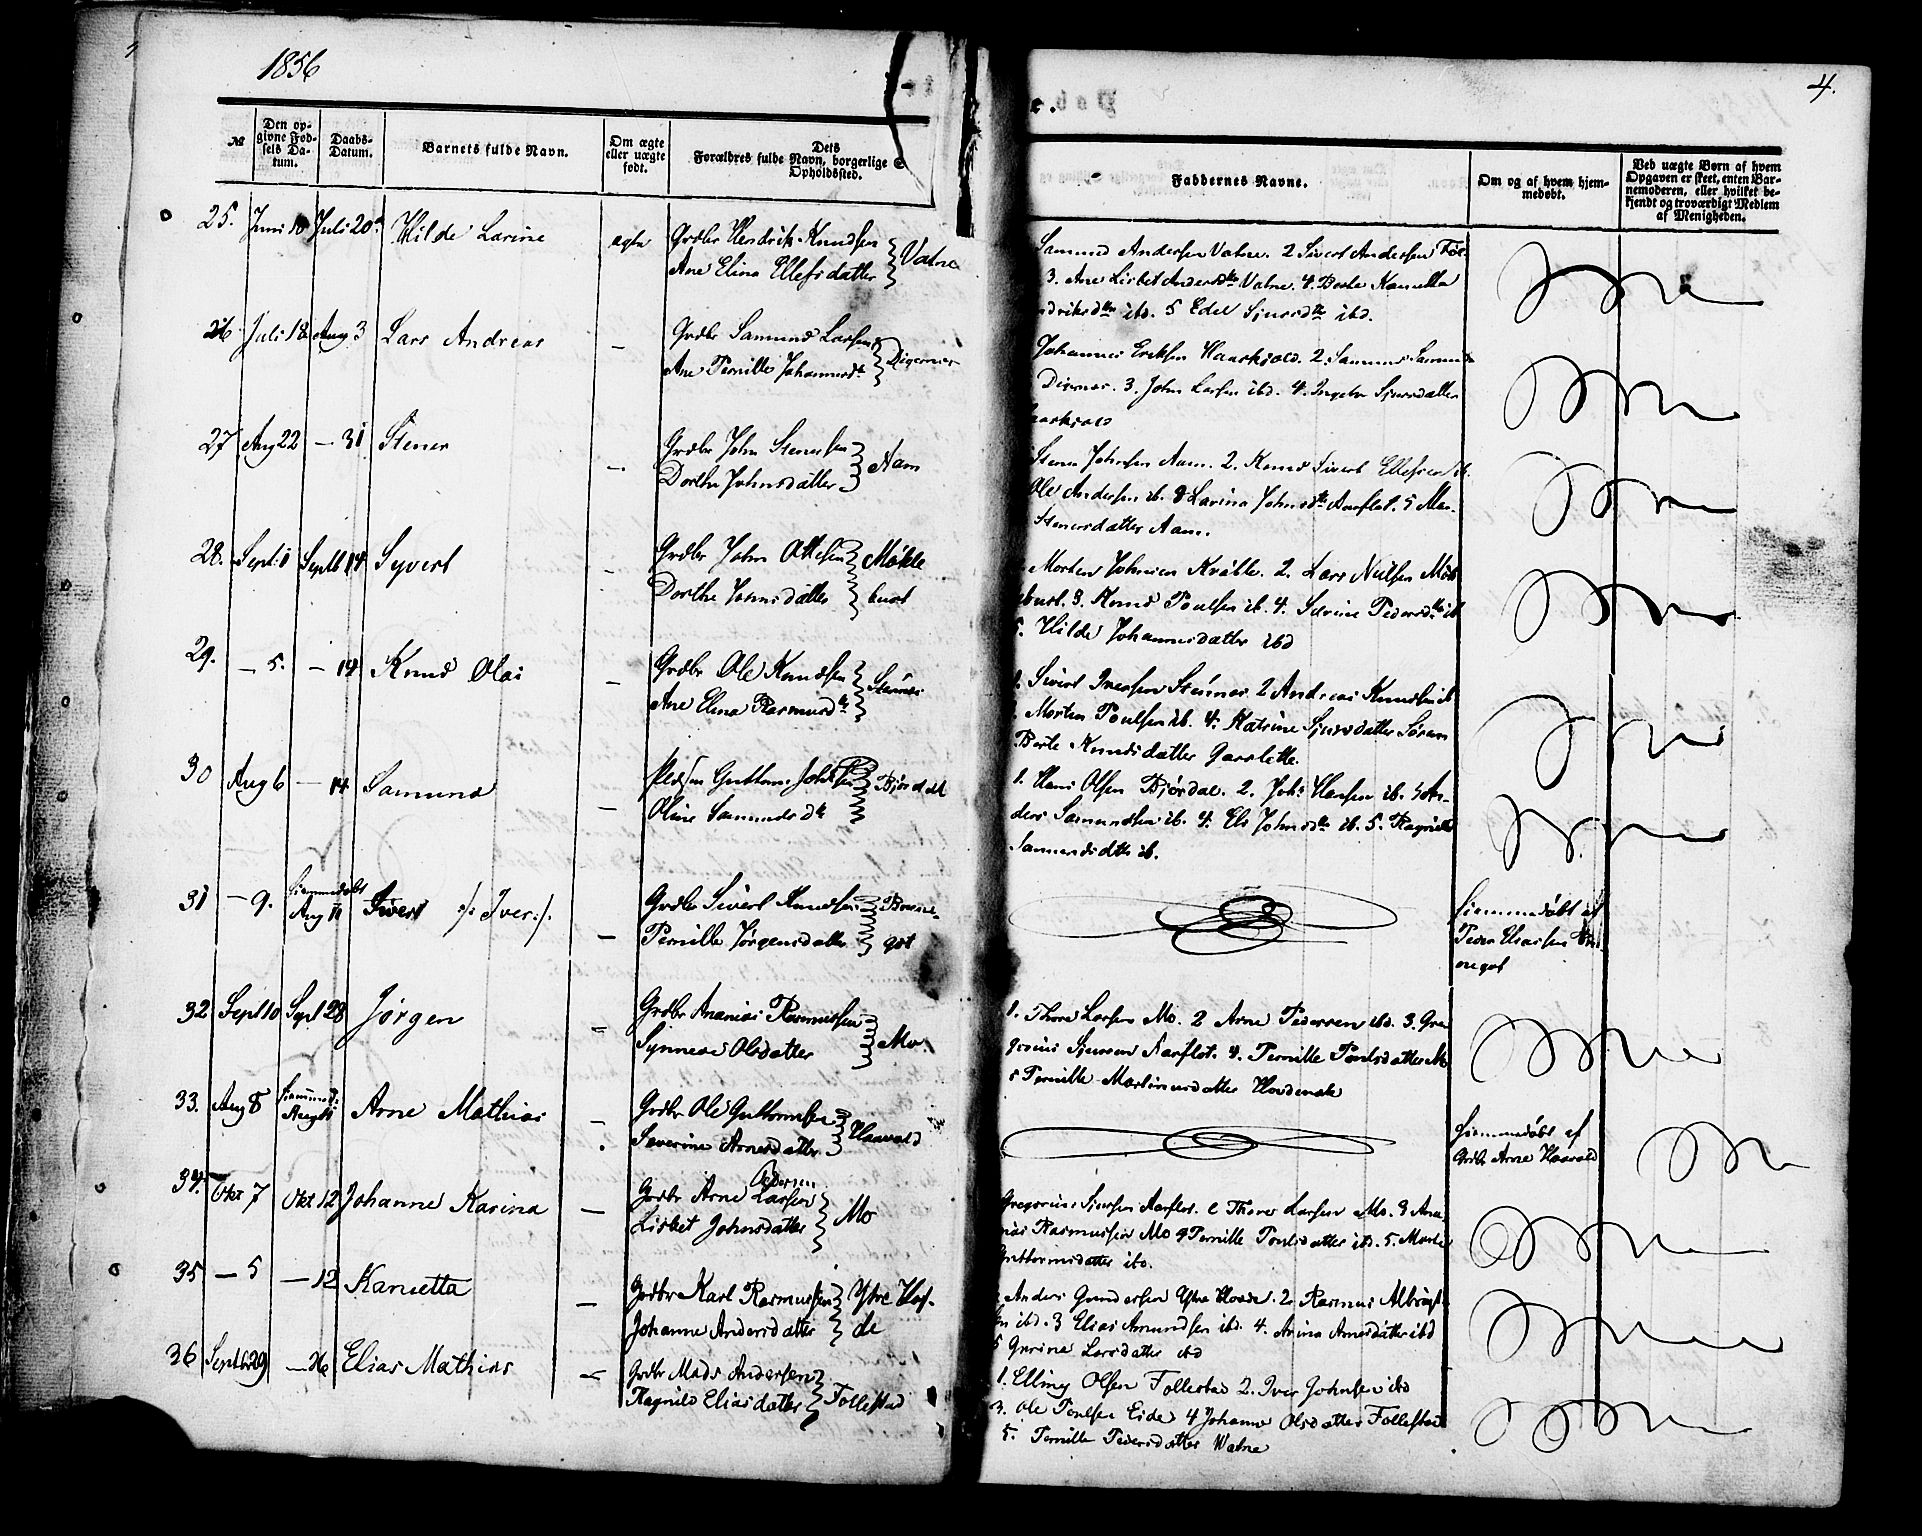 1856
4.
№
Den op-
givne Fød-
sels Da-
tum.
Daabs-
Datum.
Barnets fulde Navn.
Om ægte
eller uægte
født.
Dets
Forældres fulde Navn, borgerlige
Opholdssted.
Faddernes Navne.
Om og af hvem hjem-
medøbt.
Ved uægte Børn af hvem
Opgaven er skeet, enten Bar-
nemoderen, eller hvilket be-
kjendt og troværdigt Medlem
af Menigheden.
25. Juni 10 Juli 20 Hilde Larine ægte Grdbr Hendrik Knudsen
Ane Elina Ellefsdatter Vatne
Samund Andersen Vatne. 2 Sivert Andersen
3. Ane Lisbet Andersdtr Vatne. 4. Berte
ibd. 5 Edel Sjursdtr ibd.
26 Juli 18 Aug 3 Lars Andreas — Grdbr Samund Larsen
Ane Pernille Johannesdtr Digernes
Johannes Eriksen 2. Samund
Digernes. 3. John Larsen ibd. 4. Ingeb. Sjursdatter
27 Aug 22 — 31 Stener — Grdbr John Stenersen
Dorthe Johnsdatter Aam
Stener Johnsen Aam. 2. Knud Sivert Ellefsen ib.
Ole Andersen ib. Larina Johnsdtr Aarflot. 5
Stenersdatter Aam.
28. Sept. 1 Septb 14 Syvert - Grdbr John Ottesen
Dorthe Johnsdatter Møkle
bust
Morten Johnsen Kvable. 2. Lars Nilsen Møk
bust. 3. Knud Poulsen ib. 4. Serine Pedersdtr ib
5. Hilde Johannesdatter ibd
29. — 5. — 14 Knud Olai — Grdbr Ole Knudsen
Ane Elena Rasmusdtr Steinnes
1. Sivert Iversen Steinnes. 2 Andreas Knudsen ib
Morten Poulsen ib. 4. Katrine Sjursdatter
Berte Knudsdatter
30 Aug 6 — 14 Samund — Guttorm
Oline Samundsdtr Bjørdal
1. Hans Olsen Bjørdal. 2. Johs Hansen ib. 3 An-
ders Samundsen ib. 4. Els Johnsdtr ib. 5. Ragnilde
Samundsdtr ib.
31 — 9. hjemmedøbt
Aug 11 Sivert /: Iver :/ — Grdbr Sivert Knudsen
Pernille Jørgensdatter
hjemmedøbt af
Peder Eliassen
32 Sept 10 Sept 28 Jørgen - Grdbr Ananias Rasmussen
Synneve Olsdatter Mo
1. Thore Larsen Mo. 2 Arne Pedersen ibd. 3. Gre-
gorius Sjursen Aarflot. 4. Pernille Poulsdatter Mo
5 Pernille Martinusdatter
33. Aug 8 hjemmed:
Aug 11 Arne Mathias - Grdbr Ole Guttormsen
Severine Arnesdatter Haavold
hjemmedøbt af
Grdb. Arne Haavold
34. Okt 7 Okt 12 Johanne Karina — Grdbr Arne Larsen
Pedersen
Lisbet Johnsdatter Mo
Gregorius Sjursen Aarflot. 2 Thore Larsen Mo. 3 Ana-
nias Rasmussen Mo 4 Pernille Poulsdatter ibd. 5.
Guttormsdatter ibd.
35 — 5 — 12 Karnetta — Grdbr Karl Rasmussen
Johanne Andersdatter Ytre Hov-
de
Anders Gundersen Ytre Hovde. 2. Rasmus
ibd. 3 Elias Amundsen ibd. 4. Arina Arnesdatter ibd
5 Gurine Larsdatter ibd
36 Septb 29 — 26 Elias Mathias - Grdbr Mads Andersen
Ragnild Eliasdatter Follestad
1. Elling Olsen Follestad 2. Iver Johnsen ibd
3. Ole Poulsen Eide 4 Johanne Olsdatter Follestad
5. Pernille Pedersdatter Vatne